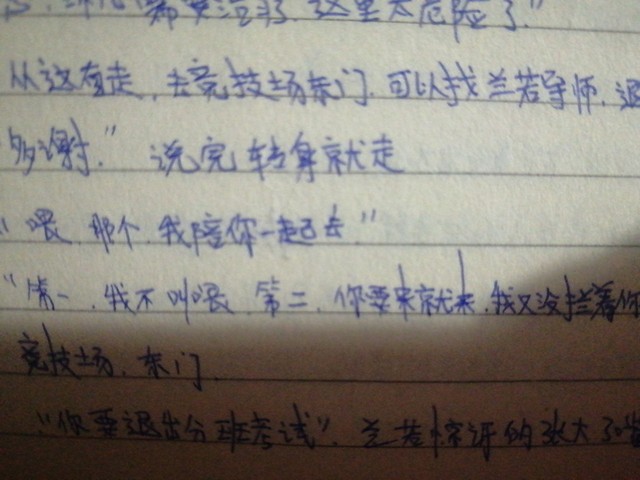 需要治疗 这里太危险了"
从这直走,去竞技场东门.可以找兰若导师.退
多谢." 说完转身就走
"喂.那个.我陪你一起去"
"第一.我不叫喂.第二.你要来就来.我又没拦着你
竞技场.东门.
"你要退出分班考试".兰若惊讶的张大了嘴